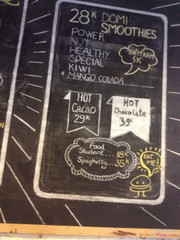 28K DOMI
SMOOTHIES
POWER
NUT
HEALTHY
SPECIAL
KIWI
MANGO COLADA
5K
HOT
Cacao
29K
HOT
Chocolate
39K
Food
Student... 18K
Spaghetty... 35K
EAT
ME!